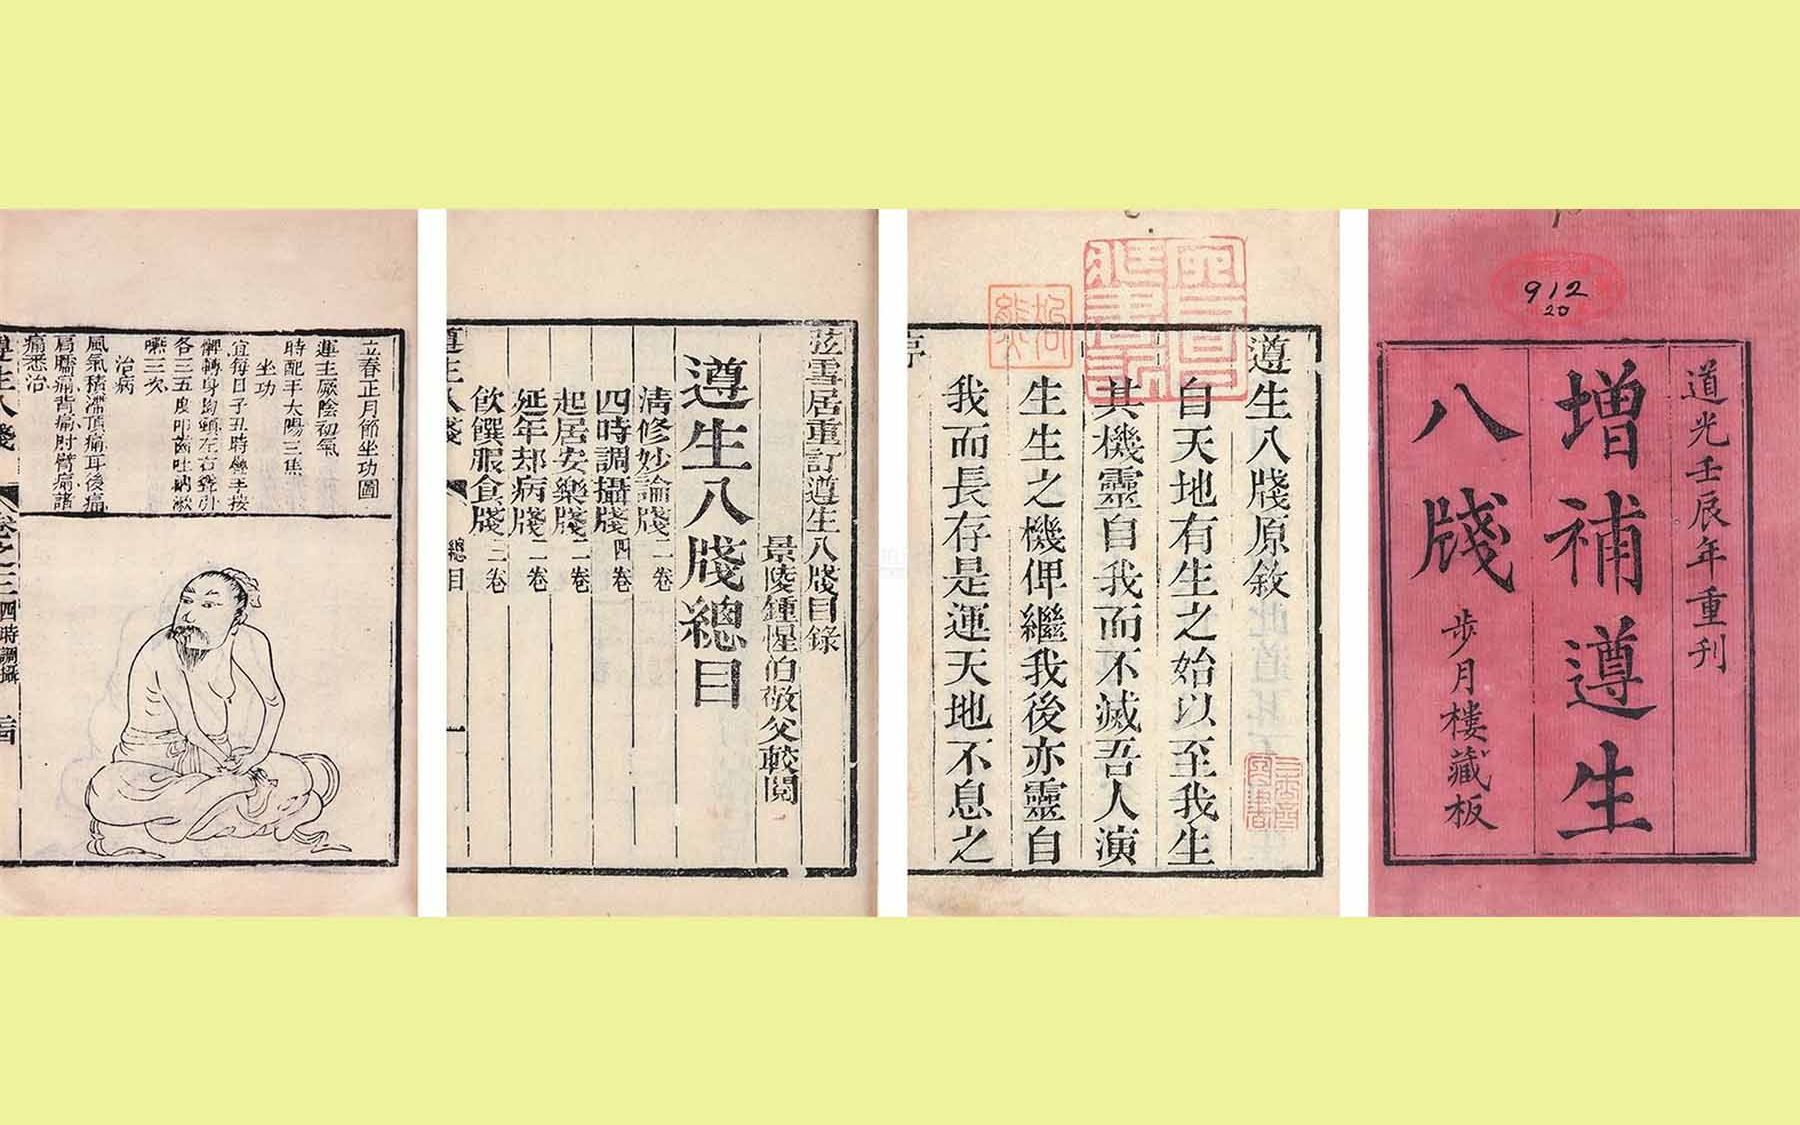 912
20
道光壬辰年重刊
增補遵生
八牋
步月樓藏板
遵生八牋原敘
自天地有生之始以至我生
其機靈自我而不滅吾人演
生生之機俾繼我後亦靈自
我而長存是運天地不息之
弦雪居重訂遵生八牋目錄
景陵鍾惺伯敬父較閱
遵生八牋總目
清修妙論牋二卷
四時調攝牋四卷
起居安樂牋二卷
延年却病牋二卷
飲饌服食牋三卷
遵生八牋 總目 一
立春正月節坐功圖
運主厥陰初氣
時配手太陽三焦
坐功
宜每日子丑時疊手按
髀轉身拗頸左右聳引
各三五度叩齒吐納漱
嚥三次
治病
風氣積滯頂痛耳後痛
肩臑痛背痛肘臂痛諸
痛悉治
遵生八牋 卷之三 四時調攝